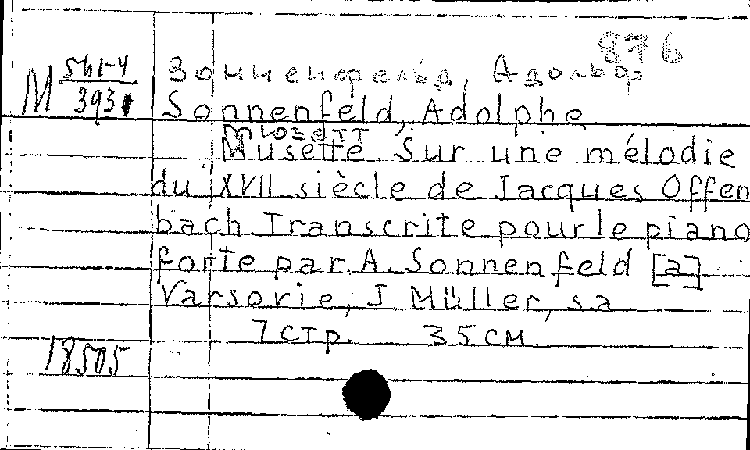 876
М 561-4/393
Зонненфельд, Адольф
Sonnenfeld, Adolphe
Мюзетт
Musette Sur une mélodie
du XVII siècle de Jacques Offen
bach Transcrite pour le piano
forte par A. Sonnenfeld [a]
Varsovie, J Müller, s a
7 стр. 35 см
18505